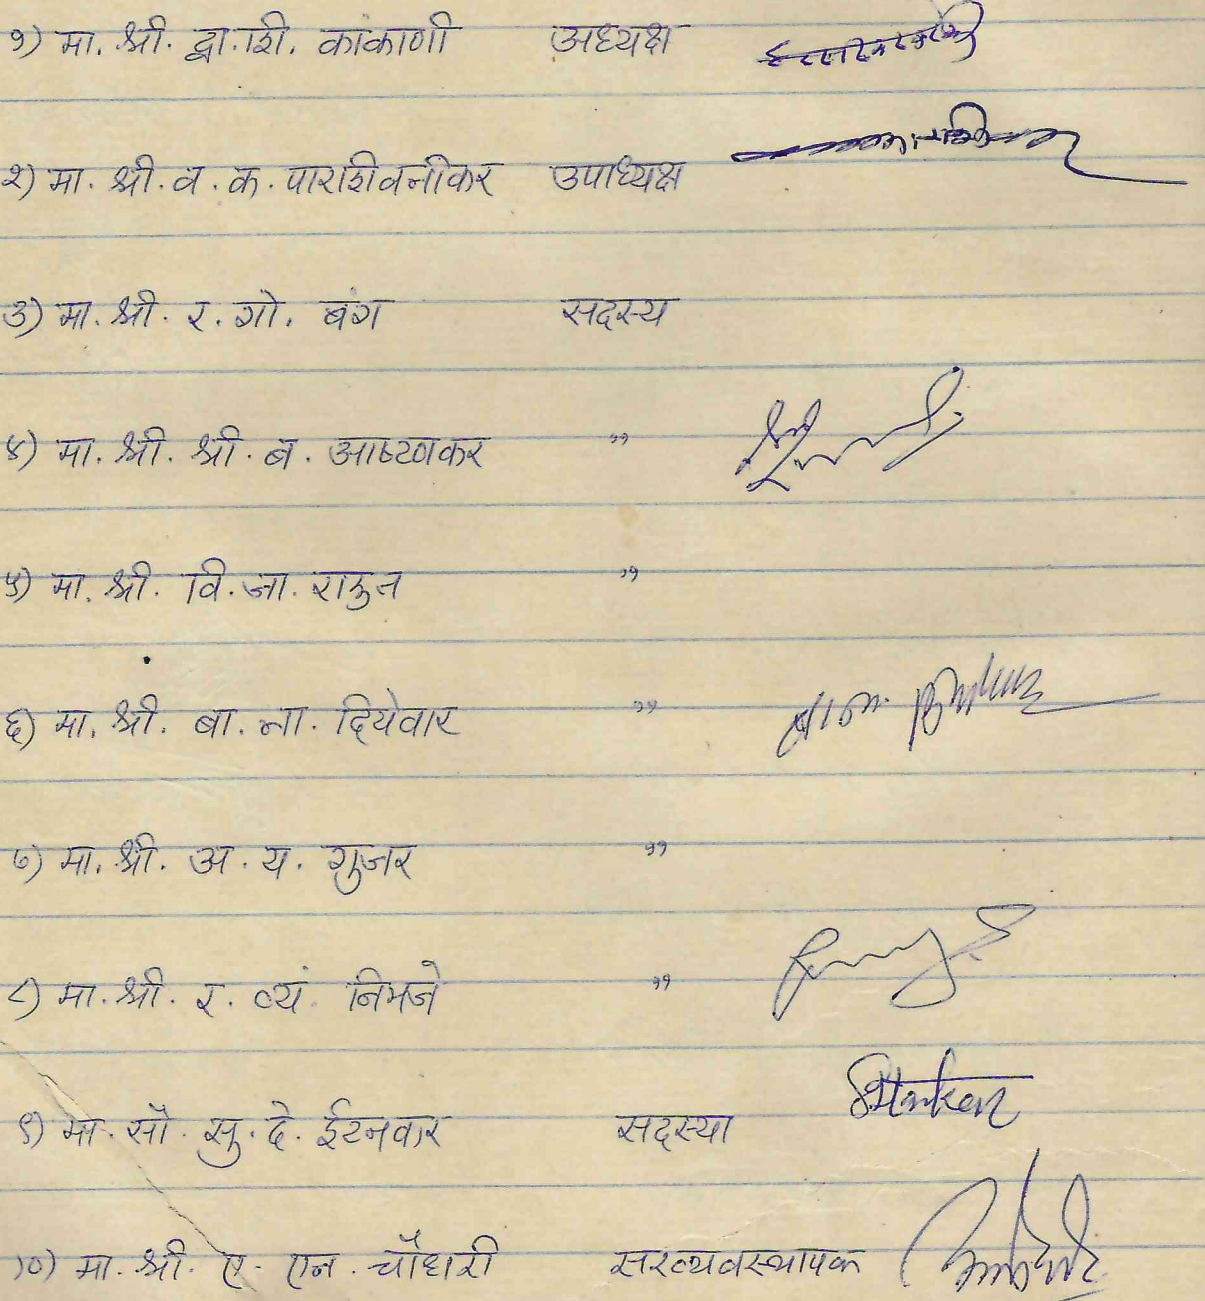 १) मा. श्री. द्वा.शि. काकाणी अध्यक्ष
२) मा. श्री. व. क. पाराशीवनीकर उपाध्यक्ष
३) मा. श्री. र. गो. बंग सदस्य
४) मा. श्री. श्री. ब. आष्टणकर ,,
५) मा. श्री. वि. जा. राऊत ,,
६) मा. श्री. बा. ना. दियेवार ,,
७) मा. श्री. अ. य. गुजर ,,
८) मा. श्री. र. व्यं. निमजे ,,
९) मा. सौ. सु. दे. ईटनकर सदस्या
१०) मा. श्री. ए. एन. चौधरी सरव्यवस्थापक